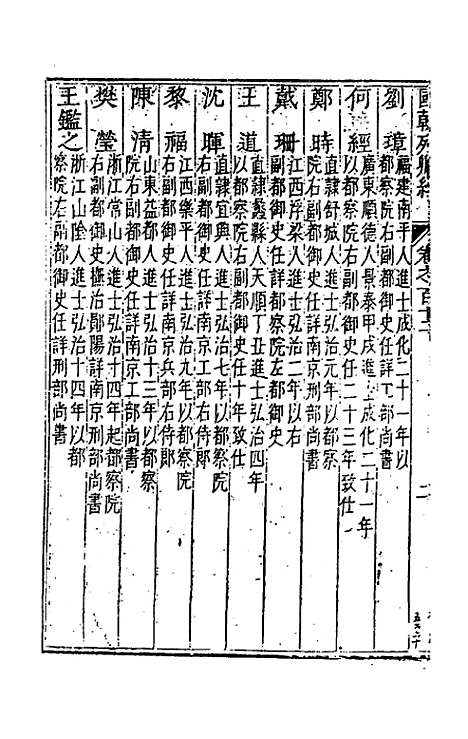 國朝列卿紀 卷之一百
二
劉璋 福建南平人進士成化二十一年以
都察院右副都御史任詳工部尚書
何經 廣東順德人景泰甲戌進士成化二十一年
以都察院右副都御史任二十三年致仕
鄭時 直隸舒城人進士弘治元年以都察
院右副都御史任詳南京刑部尚書
戴珊 江西浮梁人進士弘治二年以右
副都御史任詳都察院左都御史
王道 直隸蠡縣人天順丁丑進士弘治四年
以都察院右副都御史任十年致仕
沈暉 直隸宜興人進士弘治七年以都察院
右副都御史任詳南京工部右侍郎
黎福 江西樂平人進士弘治九年以都察院
右副都御史任詳南京兵部右侍郎
陳清 山東益都人進士弘治十三年以都察
院右副都御史任詳南京工部尚書
樊瑩 浙江常山人進士弘治十四年起都察院
右副都御史撫治鄖陽詳南京刑部尚書
王鑑之 浙江山陰人進士弘治十四年以都
察院左副都御史任詳刑部尚書